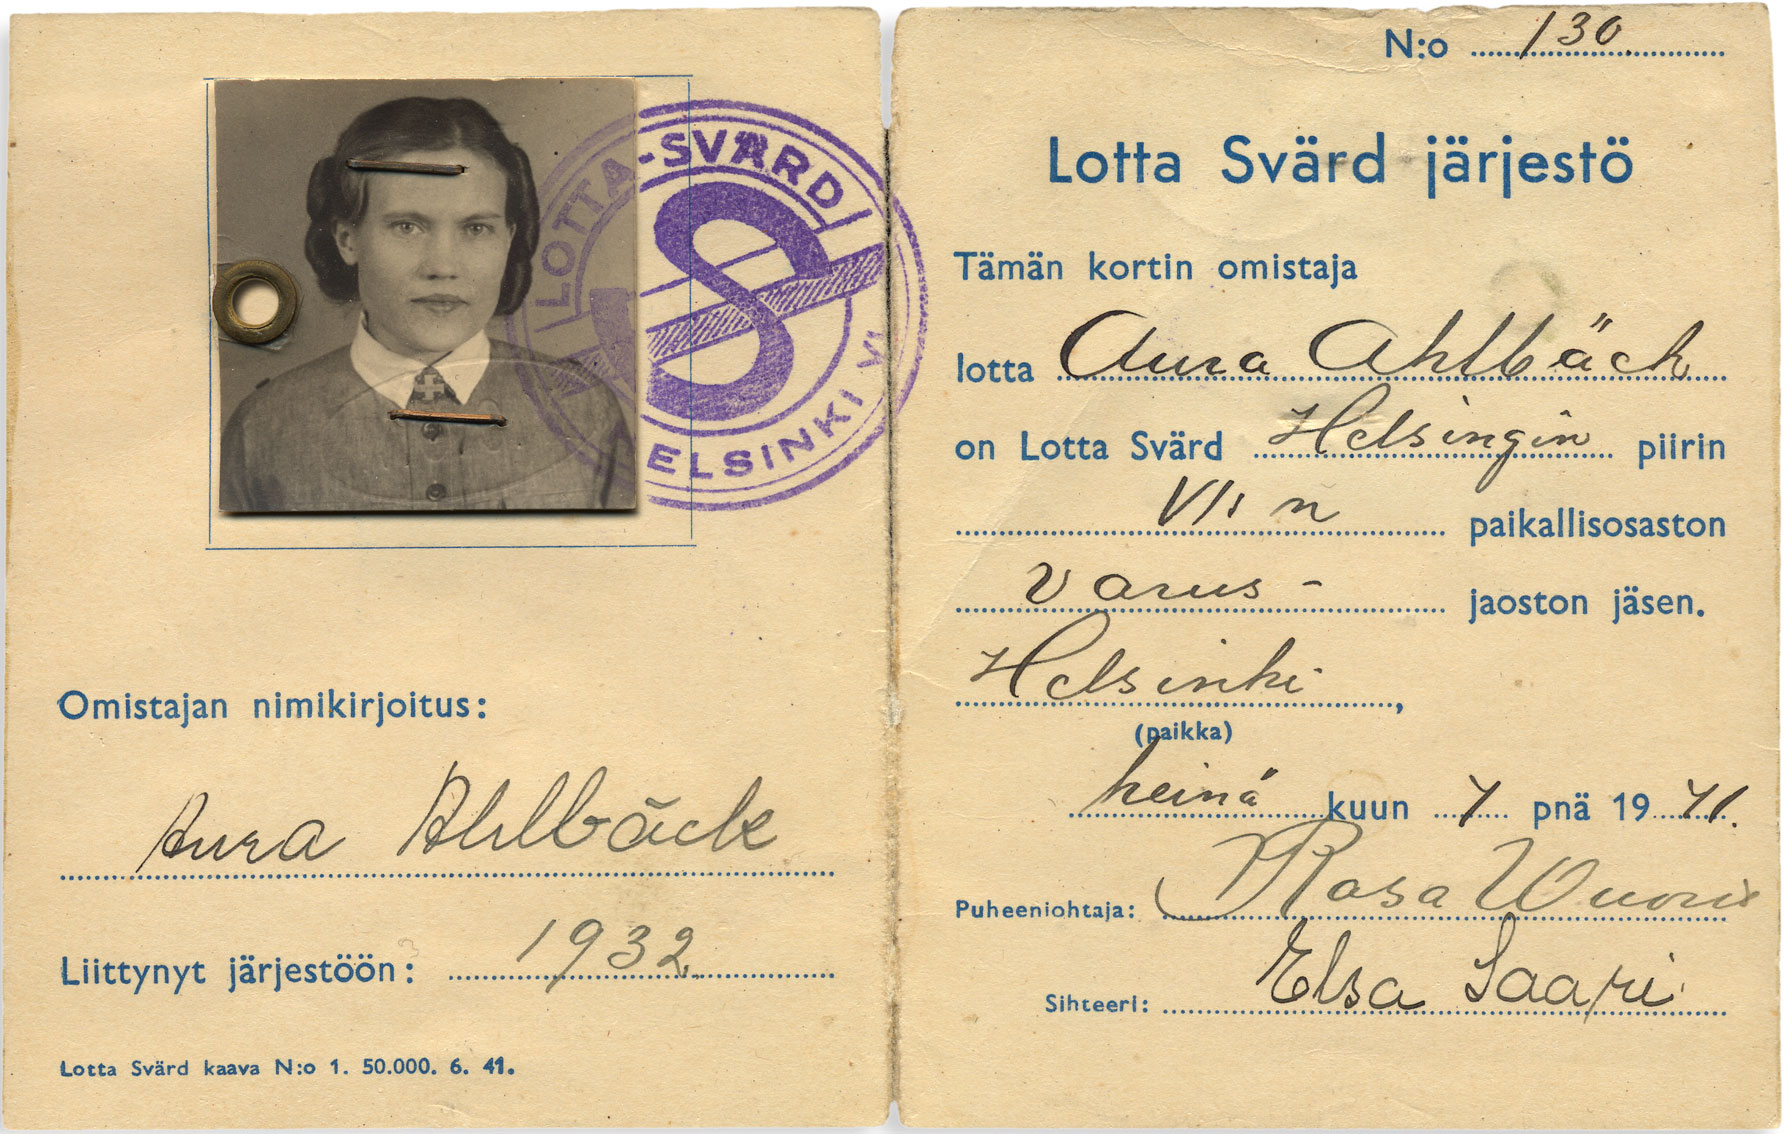 LOTTA-SVÄRD
HELSINKI VI
Omistajan nimikirjoitus:
Aura Ahlbäck
Liittynyt järjestöön: 1932
Lotta Svärd kaava N:o 1. 50.000. 6. 41.
N:o 130.
Lotta Svärd järjestö
Tämän kortin omistaja
lotta Aura Ahlbäck
on Lotta Svärd Helsingin piirin
VI:n paikallisosaston
varus- jaoston jäsen.
Helsinki,
(paikka)
heinä kuun 7 pnä 1941.
Puheeniohtaja: Rosa Wuorio
Sihteeri: Elsa Saari